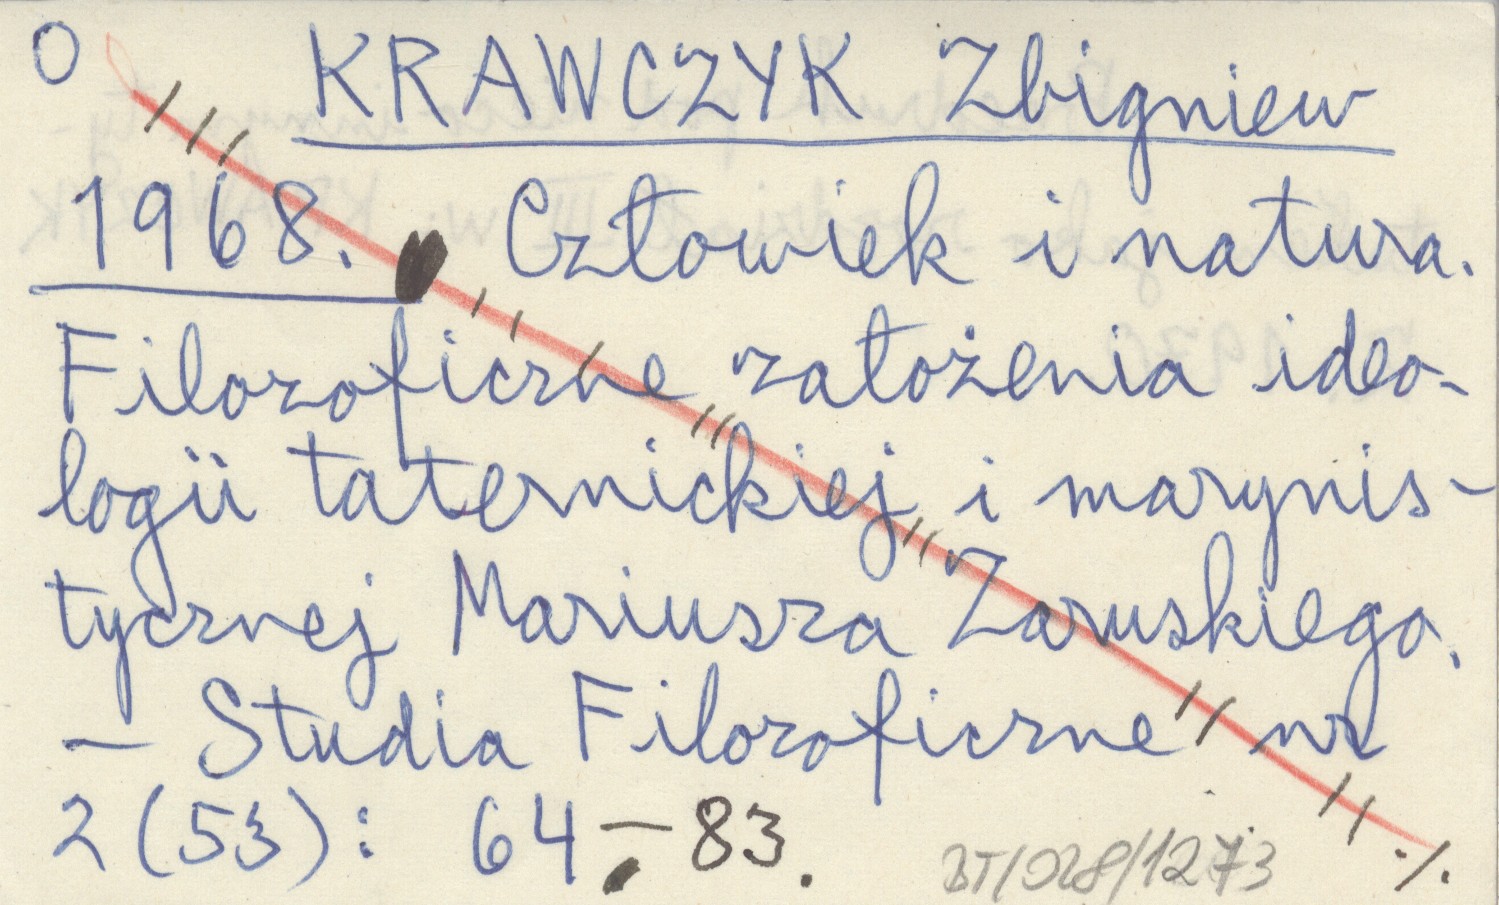 O KRAWCZYK Zbigniew
1968. Człowiek i natura.
Filozoficzne założenia ideo-
logii taternickiej i marynis-
tycznej Mariusza Zaruskiego.
— Studia Filozoficzne nr
2 (53): 64 — 83.
BT/028/1273 ·/.